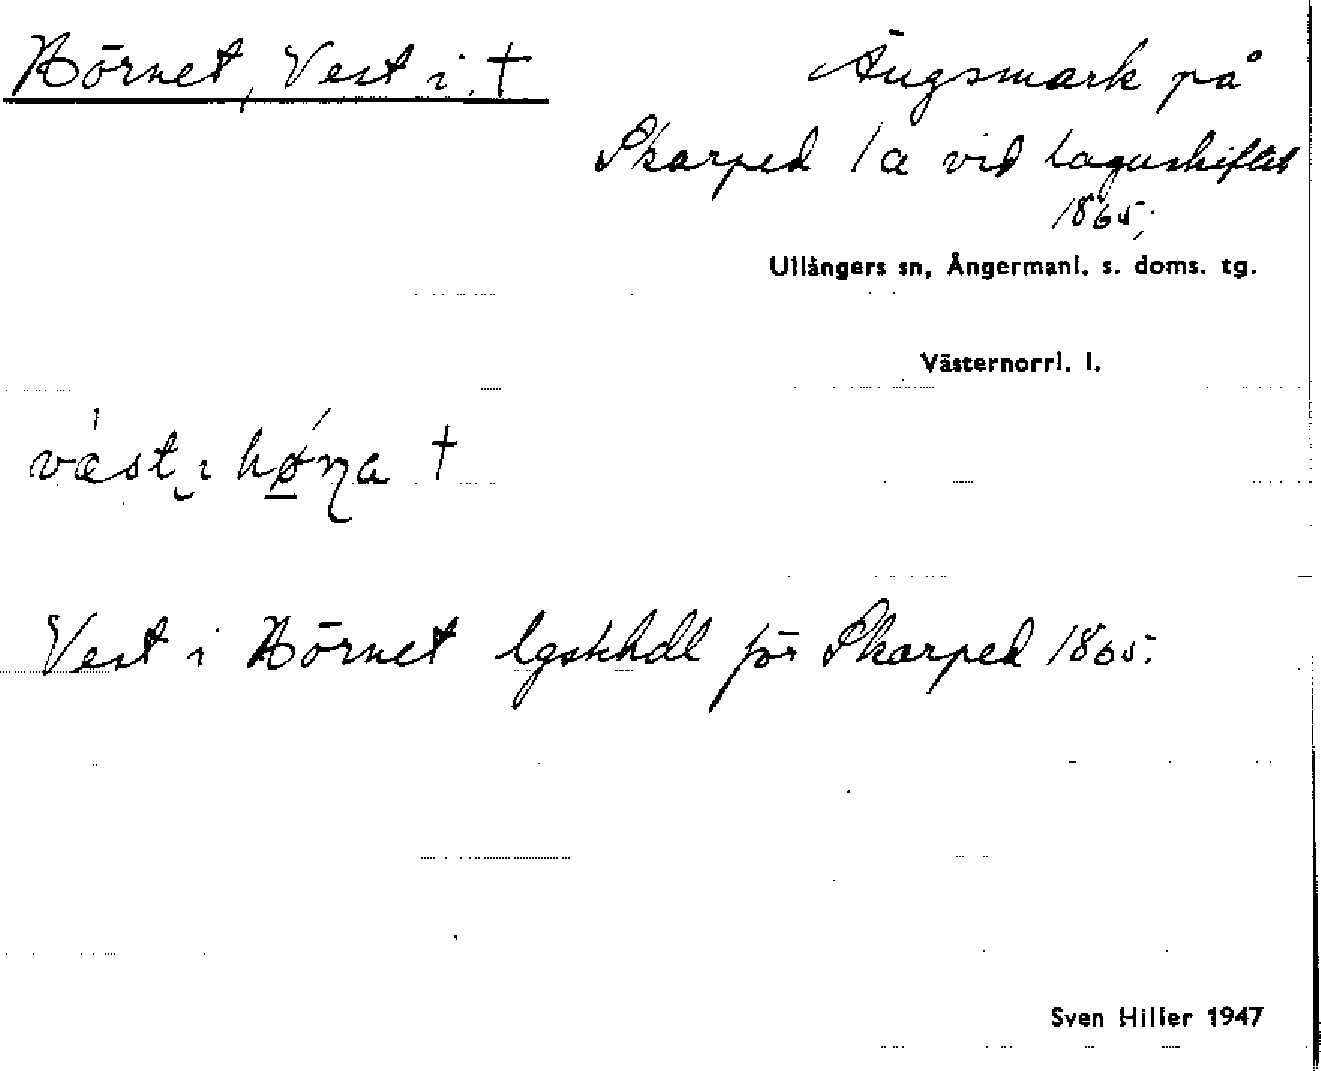 Hörnet, Vest i, †
Ängsmark på
Skarped 1a vid lagaskiftet
1865;
Ullångers sn, Ångermanl. s. doms. tg.
Västernorrl. l.
væst i høɳa †
Vest i Hörnet lgskhdl för Skarped 1865.
Sven Hiller 1947